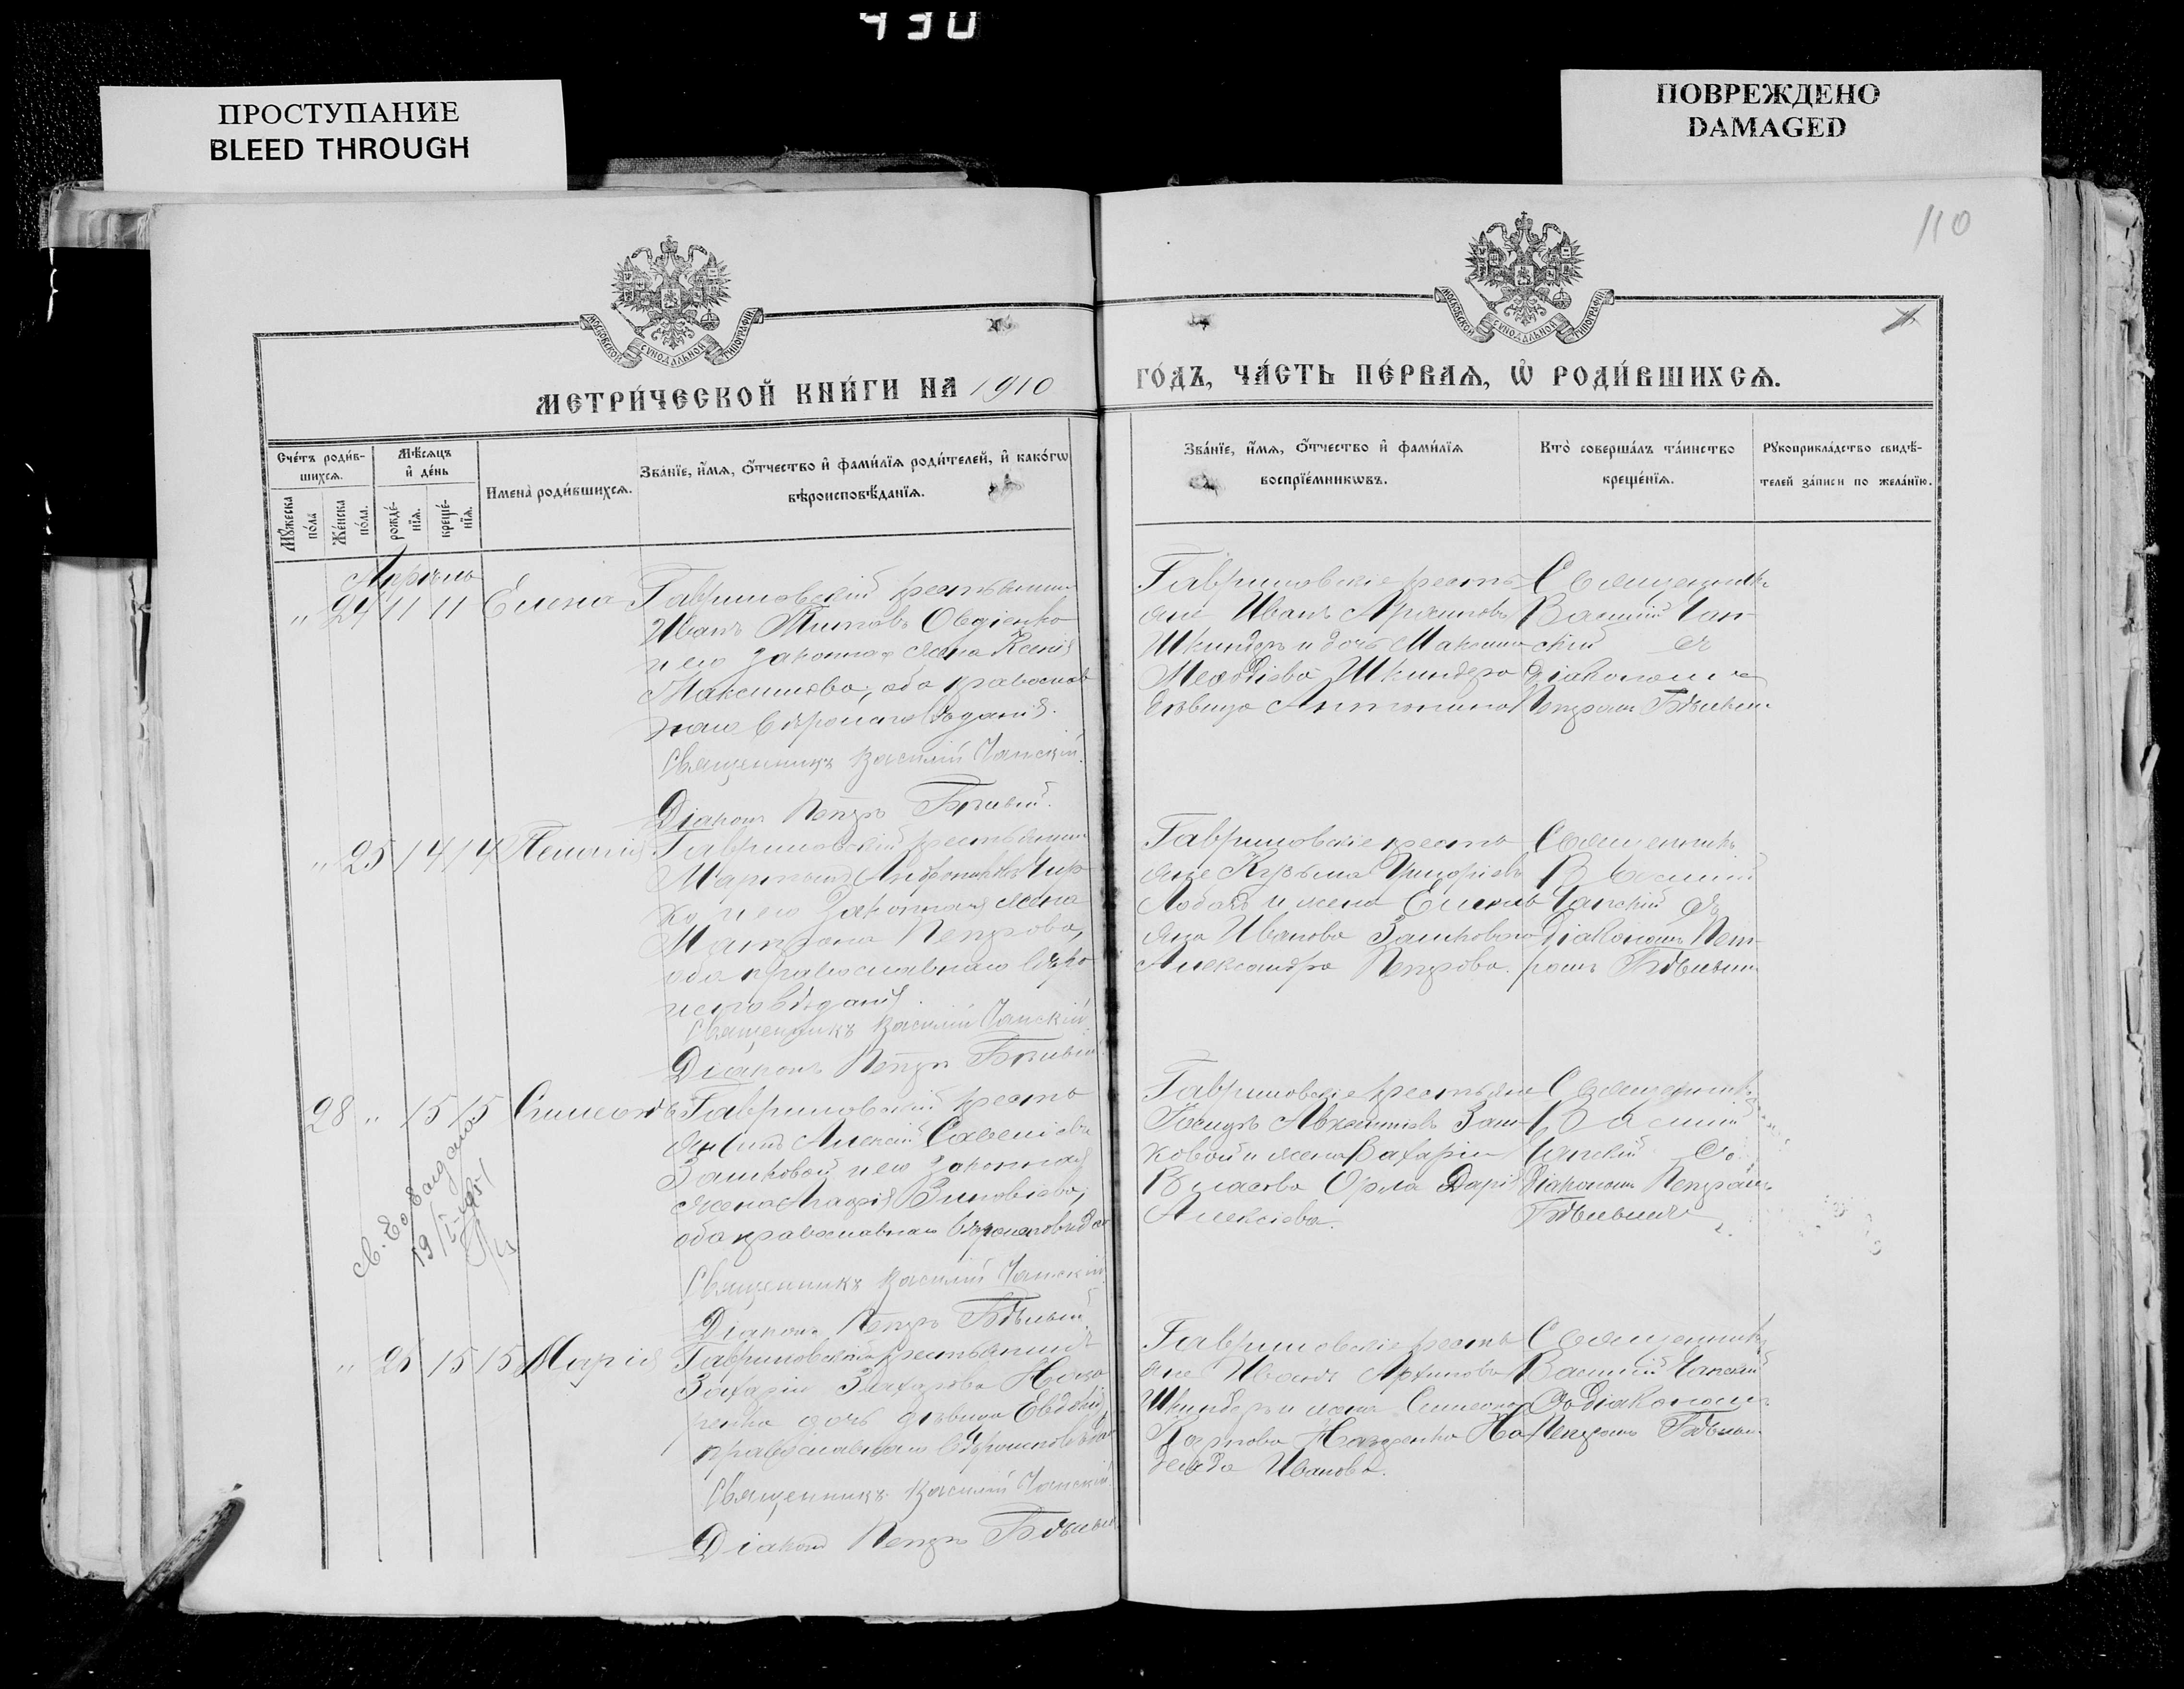 430
ПРОСТУПАНИЕ
BLEED THROUGH
ПОВРЕЖДЕНО
DAMAGED
110
МОСКОВСКОЙ СУНОДАЛЬНОЙ ТИПОГРАФІИ
МОСКОВСКОЙ СУНОДАЛЬНОЙ ТИПОГРАФІИ
МЕТРИ́ЧЕСКОЙ КНИ́ГИ НА 1910
ГО́ДЪ, ЧА́СТЬ ПЕ́РВАѦ, Ѡ҆ РОДИ́ВШИХСѦ.
Сче́тъ роди́в-
шихсѧ.
Мꙋ́жеска
по́ла
Же́нска
по́ла.
Мѣ́сѧцъ
и҆ де́нь
рожде́-
нїѧ.
креще́-
нїѧ.
И҆мена̀ роди́вшихсѧ.
Зва́нїе, и҆́мѧ, ѻ҆́тчество и҆ фами́лїѧ роди́телей, и҆ како́гѡ
вѣроисповѣ́данїѧ.
Зва́нїе, и҆́мѧ, ѻ҆́тчество и҆ фами́лїѧ
воспрїе́мникѡвъ.
Кто̀ соверша́лъ та́инство
креще́нїѧ.
Рꙋкоприкла́дство свидѣ́-
телей за́писи по жела́нїю.
Апрѣль
" 24 11 11 Елена
Гавриловскій крестьянинъ
Иванъ Титовъ Овдіенко
и его законная жена Ксенія
Максимова, оба православ
наго вѣроисповѣданія.
Священникъ Василій Чапскій.
Діаконъ Петръ Бѣлый.
Гавриловскіе кресть
яне Иванъ Архиповъ
Шкиндеръ и дочь Максима
Меѳодіева Шкиндера
дѣвица Антонина
Священникъ
Василій Чап-
скій съ
діакономъ
Петромъ Бѣлымъ
" 25 14 14 Пелагія
Гавриловскій крестьянинъ
и его законная жена
Матрона Петрова,
оба православнаго вѣро
исповѣданія.
Священникъ Василій Чапскій.
Діаконъ Петръ Бѣлый
Гавриловскіе кресть
яне Кузьма Григорьевъ
Лобачъ и жена Емель
яна Иванова Зашковаго
Александра Петрова.
Священникъ
Василій
Чапскій съ
діакономъ Пет-
ромъ Бѣлымъ
28 " 15 15 Симеонъ
Гавриловскій кресть
янинъ Алексій Савеліевъ
Зашковой и его законная
жена Зиновіева,
оба православнаго вѣроисповѣд
Священникъ Василій Чапскій
Діаконъ Петръ Бѣлый
Гавриловскіе крестьяне
Заш-
ковой и жена Захарія
Власова Орла Дарія
Алексіева.
Священникъ
Василій
Чапскій съ
Діакономъ Петромъ
Бѣлымъ
св.
" 26 15 15 Марія
Гавриловскаго крестьянина
Захарія Захарова
дочь дѣвица Евдокія
православнаго вѣроисповѣд
Священникъ Василій Чапскій
Діаконъ Петръ Бѣлый
Гавриловскіе кресть
яне Иванъ Архиповъ
Шкиндеръ и жена Симеона
Карпова На
дежда Иванова.
Священникъ
Василій Чапскій
съ діакономъ
Петромъ Бѣлымъ